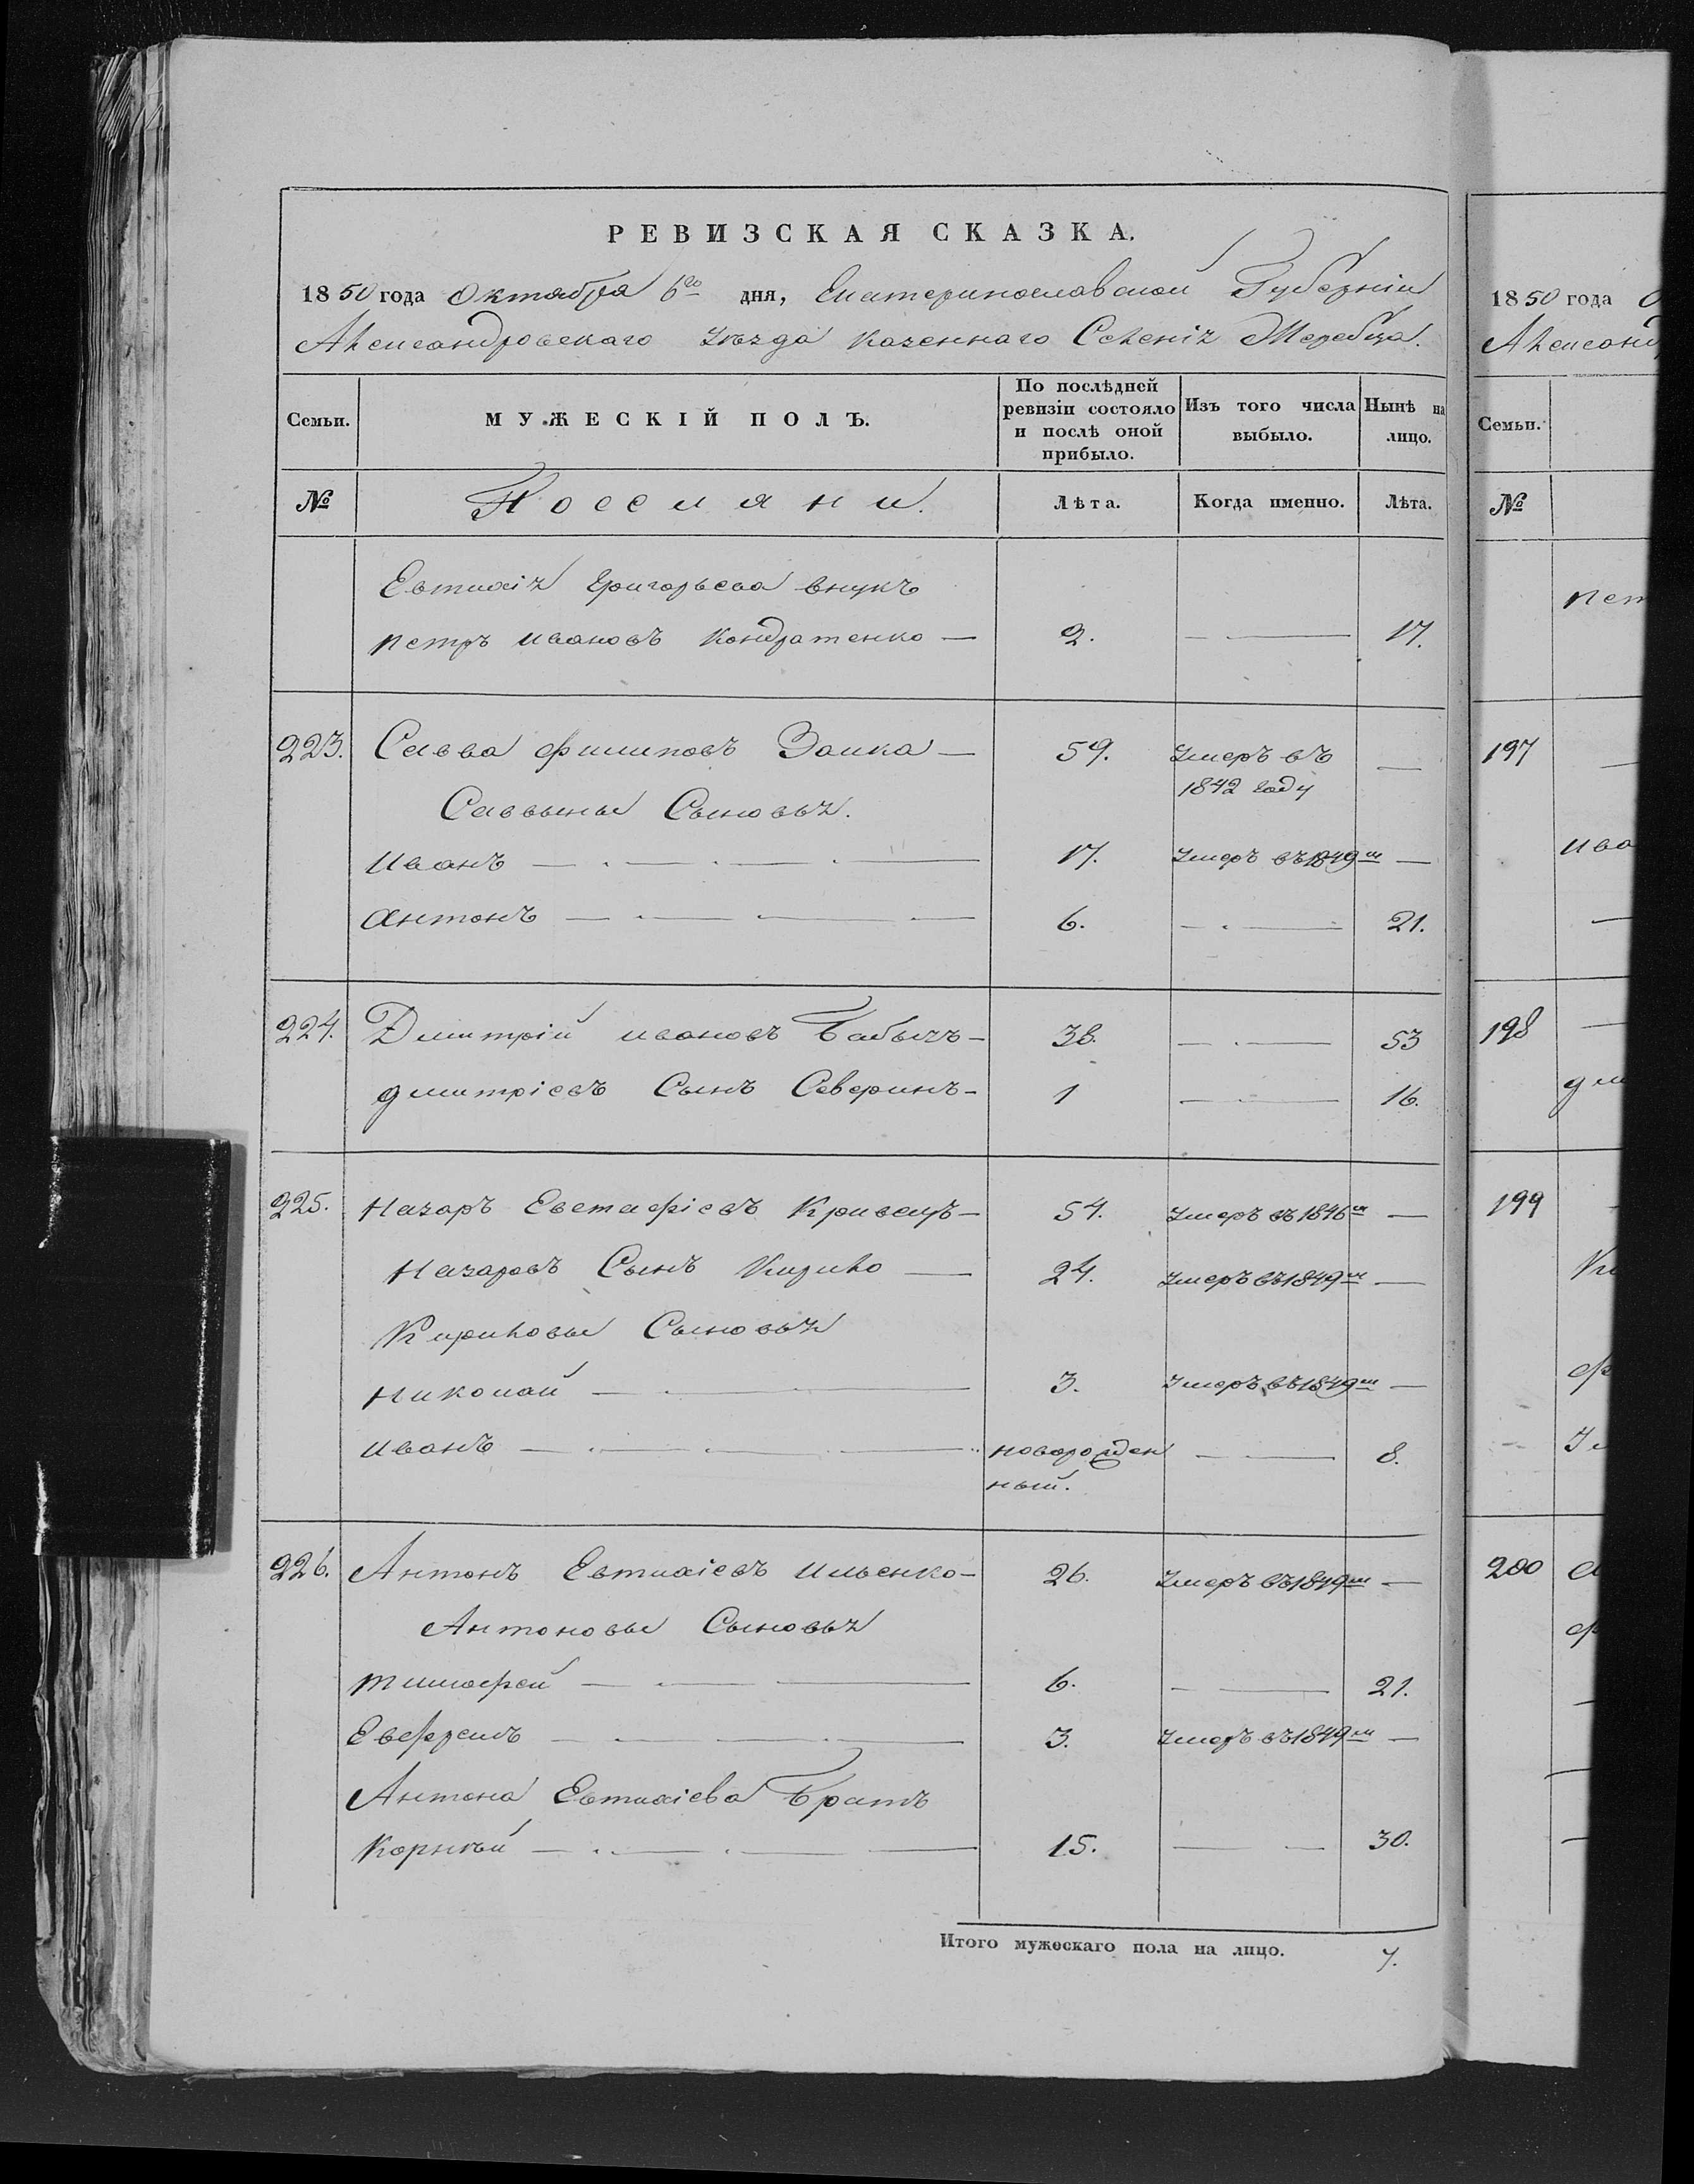 РЕВИЗСКАЯ СКАЗКА.
1850 года Октября 6го дня, Екатеринославской Губерніи
Александровскаго уѣзда казеннаго Селенія Жеребца.
Семьи. МУЖЕСКІЙ ПОЛЪ. По послѣдней ревизіи состояло и послѣ оной прибыло. Изъ того числа выбыло. Нынѣ на лицо.
№ Поселяни. Лѣта. Когда именно. Лѣта.
Евтихія Григорьева внукъ
петръ ивановъ Кондратенко — 2. — 17.
223. Савва филиповъ Заика — 59. умеръ въ 1842 году —
Саввины Сыновья.
иванъ — 17. умеръ въ 1849м —
антонъ — 6. — 21.
224. Дмитрій ивановъ Бабычъ — 38. — 53
дмитріевъ Сынъ Северинъ — 1 — 16.
225. Назаръ Евстафіевъ Кривецъ — 54. умеръ въ 1846м —
Назаровъ Сынъ Кирило — 24. умеръ въ 1849м —
Кириловы Сыновья
николай — 3. умеръ въ 1849м —
иванъ — новорожденный. — 8.
226. Антонъ Евтихіевъ ильенко — 26. умеръ въ 1849м —
Антоновы Сыновья
тимофей — 6. — 21.
Евфремъ — 3. умеръ въ 1849м —
Антона Евтихіева Братъ
Корнѣй — 15. — 30.
Итого мужескаго пола на лицо. 7.
1850 года О
Александ
Семьи.
№
пет
197
ива
198
дми
199
Ки
ф
200